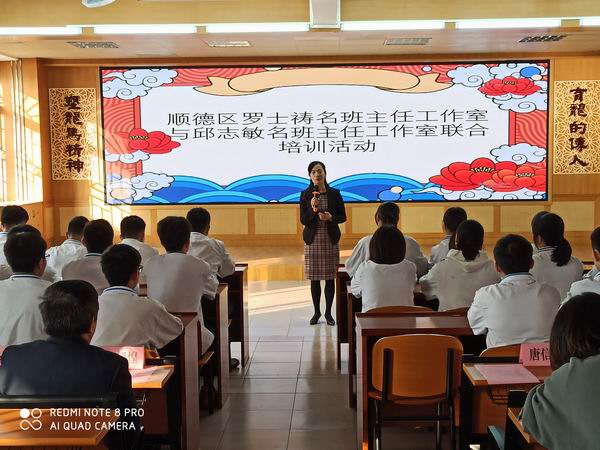 顺德区罗士祷名班主任工作室
与邱志敏名班主任工作室联合
培训活动
塑龍馬精神
育龍的傳人
唐信
REDMI NOTE 8 PRO
AI QUAD CAMERA